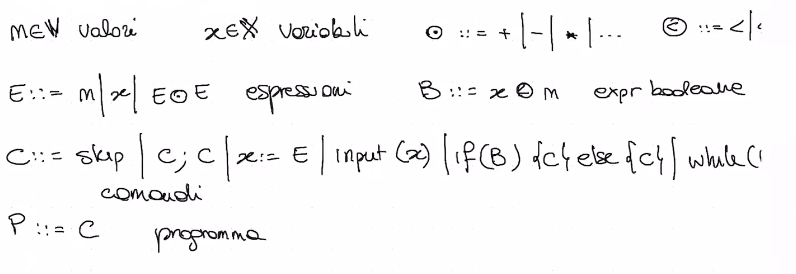 m∈V valori x∈X variabili ⊙ ::= + | - | * | ... ⊜ ::= < |
E ::= m | x | E ⊙ E espressioni B ::= x ⊜ m expr booleane
C ::= skip | C; C | x := E | input (x) | if (B) {C} else {C} | while (
comandi
P ::= C programma